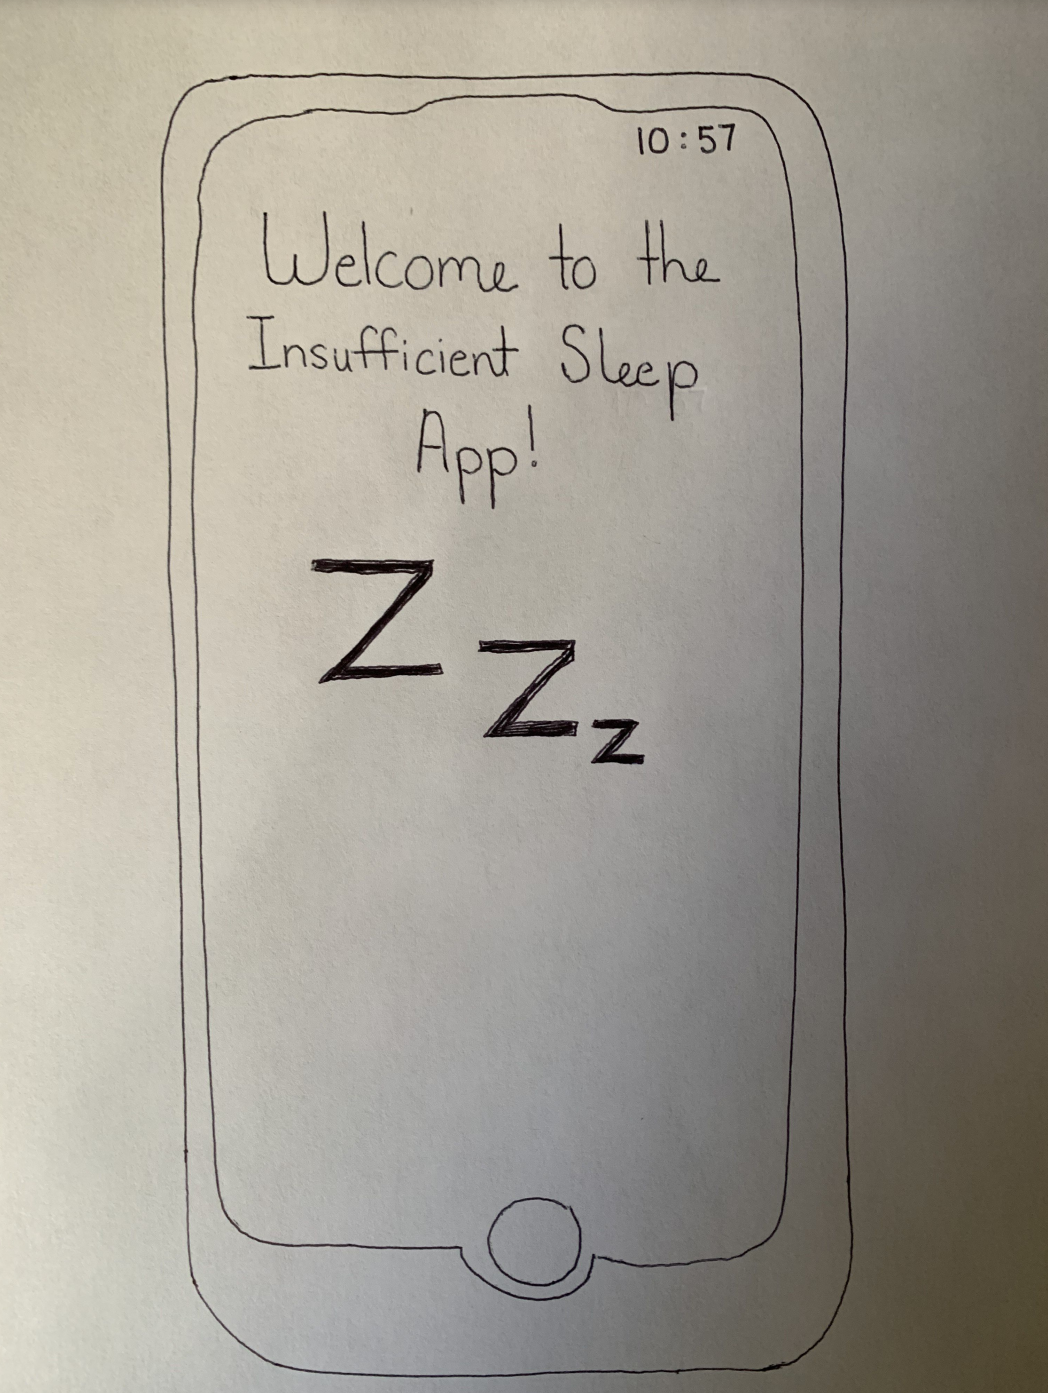 10:57
Welcome to the
Insufficient Sleep
App!
Z
Z
z